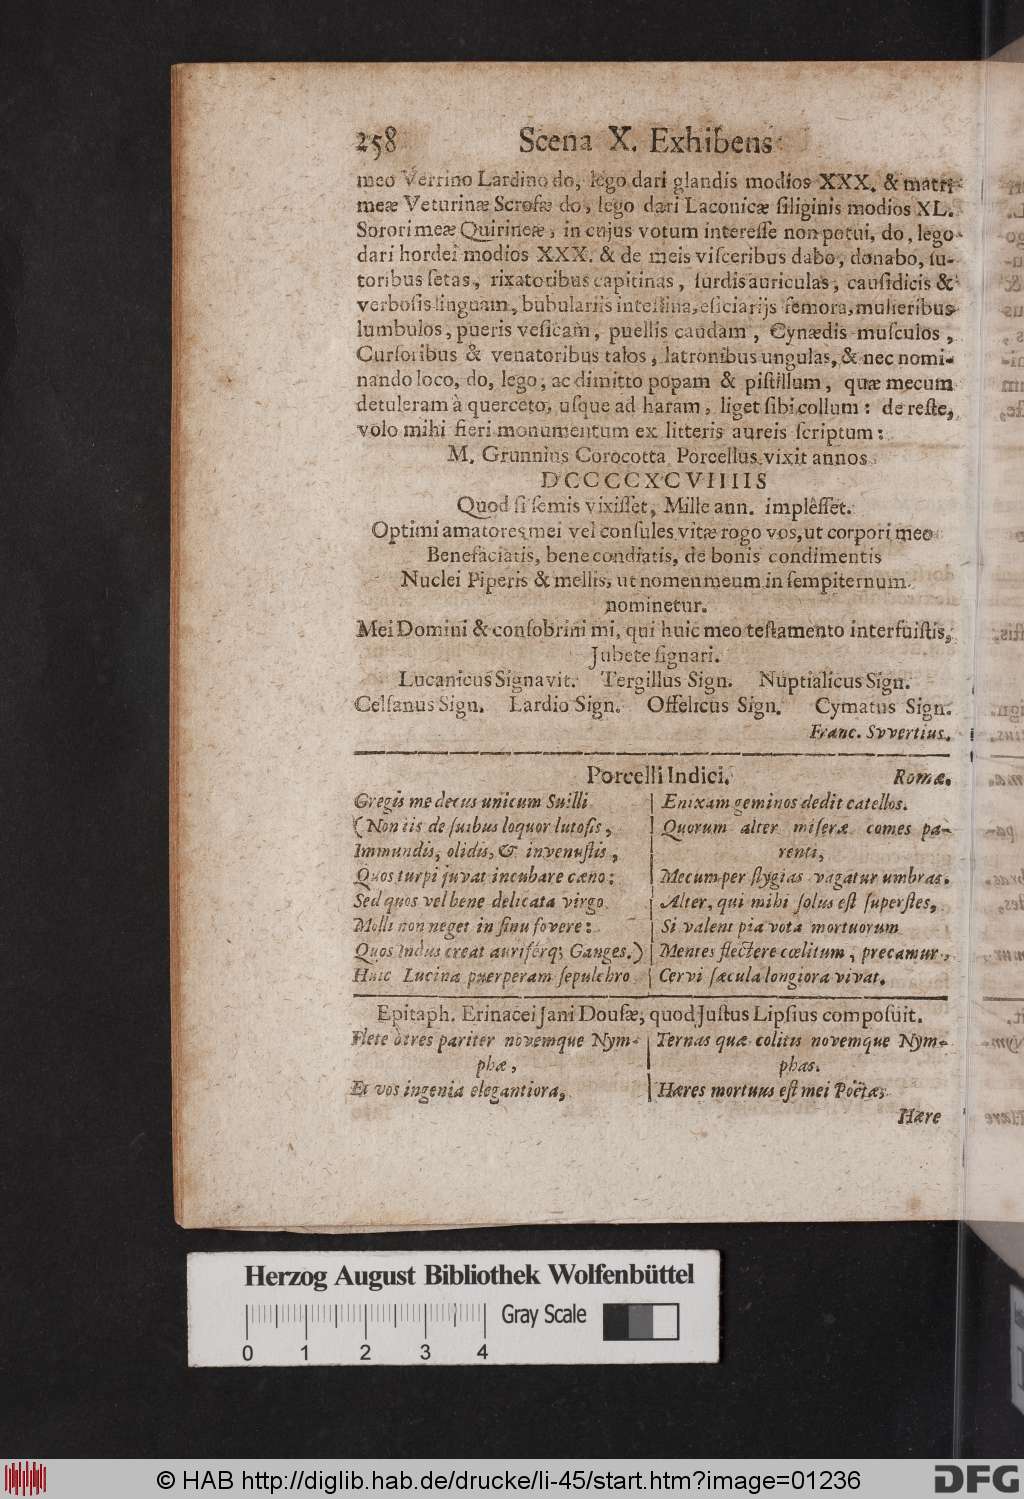 258 Scena X. Exhibens
meo Verrino Lardino do, lego dari glandis modios XXX. & matri
meæ Veturinæ Scrofæ do, lego dari Laconicæ ſiliginis modios XL.
Sorori meæ Quirineæ, in cujus votum intereſſe non potui, do, lego
dari hordei modios XXX. & de meis viſceribus dabo, donabo, ſu-
toribus ſetas, rixatoribus capitinas, ſurdis auriculas, cauſidicis &
verboſis linguam, bubulariis inteſtina, eſiciarijs femora, mulieribus
lumbulos, pueris veſicam, puellis caudam, Cynædis muſculos,
Curſoribus & venatoribus talos, latronibus ungulas, & nec nomi-
nando loco, do, lego, ac dimitto popam & piſtillum, quæ mecum
detuleram à querceto, uſque ad haram, liget ſibi collum: de reſte,
volo mihi fieri monumentum ex litteris aureis ſcriptum:
M. Grunnius Corocotta Porcellus vixit annos
DCCCCXCVIIIIS
Quod ſi ſemis vixiſſet, Mille ann. implêſſet.
Optimi amatores mei vel conſules vitæ rogo vos, ut corpori meo
Benefaciatis, bene condiatis, de bonis condimentis
Nuclei Piperis & mellis, ut nomen meum in ſempiternum
nominetur.
Mei Domini & conſobrini mi, qui huic meo teſtamento interfuiſtis,
Jubete ſignari.
Lucanicus Signavit. Tergillus Sign. Nuptialicus Sign.
Celſanus Sign. Lardio Sign. Offelicus Sign. Cymatus Sign.
Franc. Svvertius.
Porcelli Indici. Romæ.
Gregis me decus unicum Suilli
(Non iis de ſuibus loquor lutoſis,
Immundis, olidis, & invenuſtis,
Quos turpi juvat incubare cœno:
Sed quos vel bene delicata virgo
Molli non neget in ſinu fovere:
Quos Indus creat auriférq; Ganges.)
Huic Lucina puerperam ſepulchro
Enixam geminos dedit catellos.
Quorum alter miſeræ comes pa-
renti,
Mecum per ſtygias vagatur umbras.
Alter, qui mihi ſolus eſt ſuperſtes,
Si valent pia vota mortuorum
Mentes flectere cœlitum, precamur,
Cervi ſæcula longiora vivat.
Epitaph. Erinacei Jani Douſæ, quod Juſtus Lipſius compoſuit.
Flete ò tres pariter novemque Nym-
phæ,
Et vos ingenia elegantiora,
Ternas quæ colitis novemque Nym-
phas.
Hæres mortuus eſt mei Poëtæ,
Hære
Herzog August Bibliothek Wolfenbüttel
Gray Scale
0 1 2 3 4
© HAB http://diglib.hab.de/drucke/li-45/start.htm?image=01236
DFG